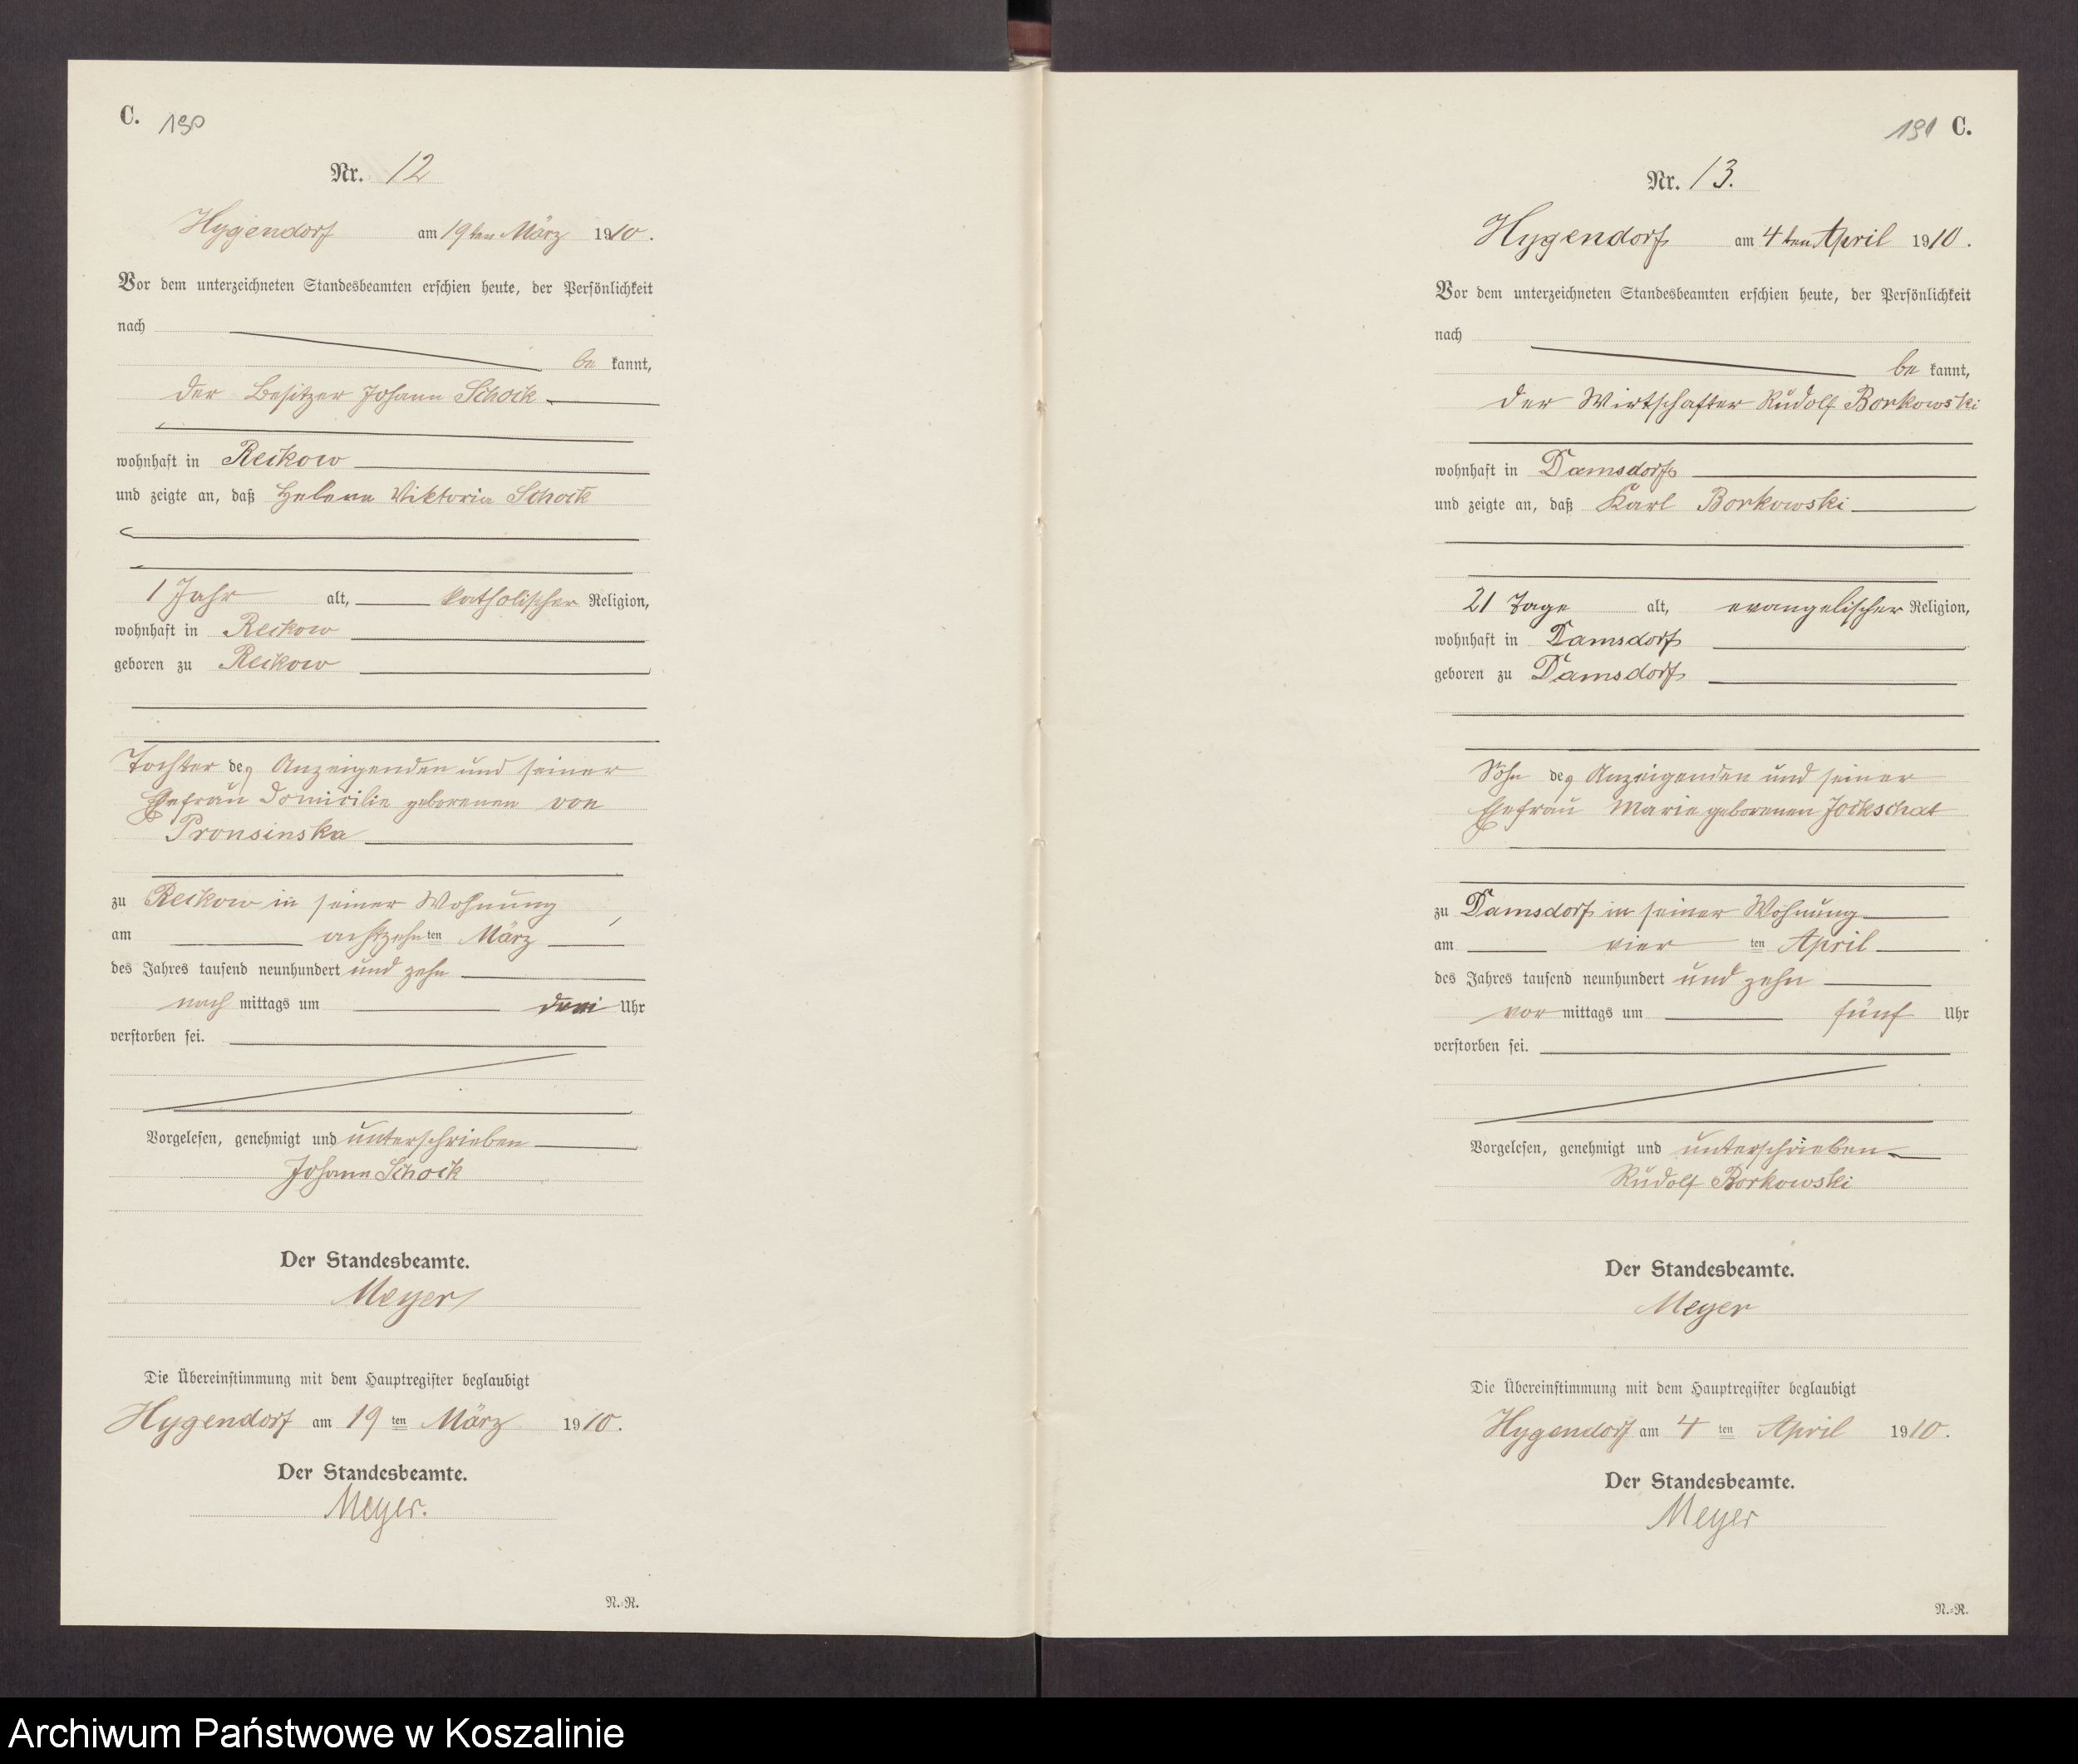 C. 190
Nr. 12
Hygendorf am 19ten März 1910.
Vor dem unterzeichneten Standesbeamten erschien heute, der Persönlichkeit
nach
be kannt,
der Besitzer Johann Schock
wohnhaft in Reckow
und zeigte an, daß Helene Viktoria Schock
1 Jahr alt, katholischer Religion,
wohnhaft in Reckow
geboren zu Reckow
Tochter des Anzeigenden und seiner
Ehefrau Domicilie geborenen von
Pronsinska
zu Reckow in seiner Wohnung
am achtzehnten März
des Jahres tausend neunhundert und zehn
nach mittags um drei Uhr
verstorben sei.
Vorgelesen, genehmigt und unterschrieben
Johann Schock
Der Standesbeamte.
Meyer
Die Übereinstimmung mit dem Hauptregister beglaubigt
Hygendorf am 19 ten März 1910.
Der Standesbeamte.
Meyer.
N.-R.
191 C.
Nr. 13.
Hygendorf am 4ten April 1910.
Vor dem unterzeichneten Standesbeamten erschien heute, der Persönlichkeit
nach
be kannt,
der Wirtschafter Rudolf Borkowski
wohnhaft in Damsdorf
und zeigte an, daß Karl Borkowski
21 Tage alt, evangelischer Religion,
wohnhaft in Damsdorf
geboren zu Damsdorf
Sohn des Anzeigenden und seiner
Ehefrau Marie geborenen Jockschat
zu Damsdorf in seiner Wohnung
am vier ten April
des Jahres tausend neunhundert und zehn
vor mittags um fünf Uhr
verstorben sei.
Vorgelesen, genehmigt und unterschrieben
Rudolf Borkowski
Der Standesbeamte.
Meyer
Die Übereinstimmung mit dem Hauptregister beglaubigt
Hygendorf am 4 ten April 1910.
Der Standesbeamte.
Meyer
N.-R.
Archiwum Państwowe w Koszalinie